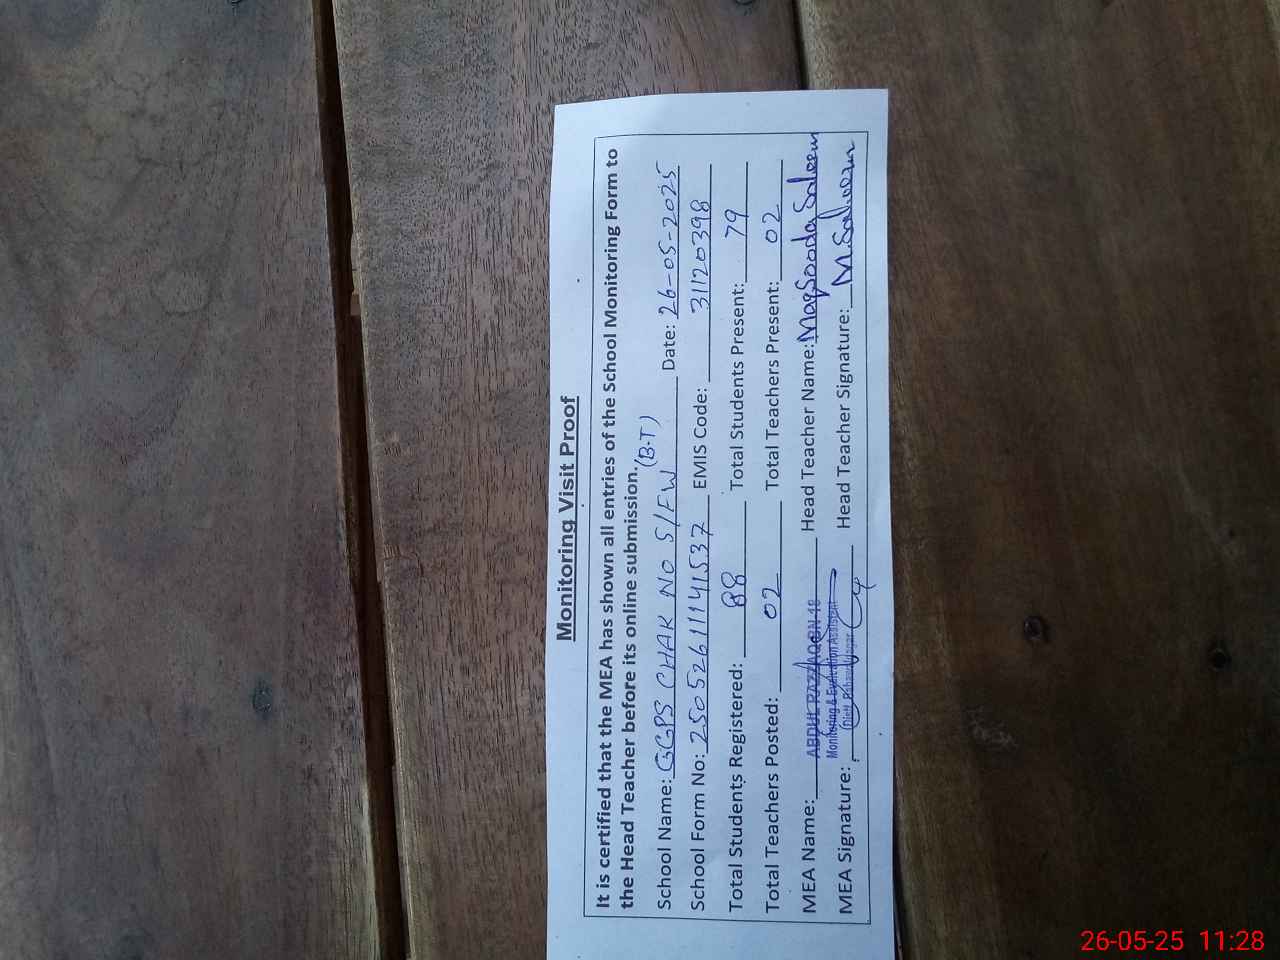 Monitoring Visit Proof
It is certified that the MEA has shown all entries of the School Monitoring Form to
the Head Teacher before its online submission.
School Name: GGPS CHAK NO 5/FW (B-T) Date: 26-05-2025
School Form No: 25052611141537 EMIS Code: 31120398
Total Students Registered: 88 Total Students Present: 79
Total Teachers Posted: 02 Total Teachers Present: 02
MEA Name: ABDUL RAZZAQ BN-18 Head Teacher Name: Maqsooda Saleem
Monitoring & Evaluation Assistant
MEA Signature: Distt. Bahawalnagar Head Teacher Signature: M.Saleem
26-05-25 11:28